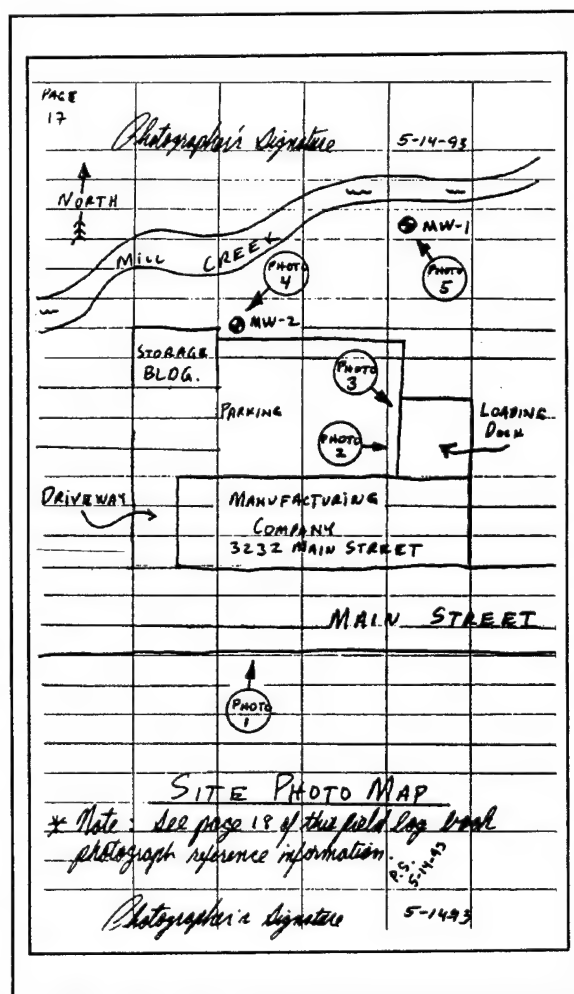 PAGE
17
Photographer's Signature 5-14-93
NORTH
MILL CREEK
MW-1
PHOTO
4
PHOTO
5
MW-2
STORAGE
BLDG.
PHOTO
3
PARKING
LOADING
DOCK
PHOTO
2
DRIVEWAY
MANUFACTURING
COMPANY
3232 MAIN STREET
MAIN STREET
PHOTO
1
SITE PHOTO MAP
* Note: See page 18 of this field log book
photograph reference information.
P.S.
5-14-93
Photographer's Signature 5-1493